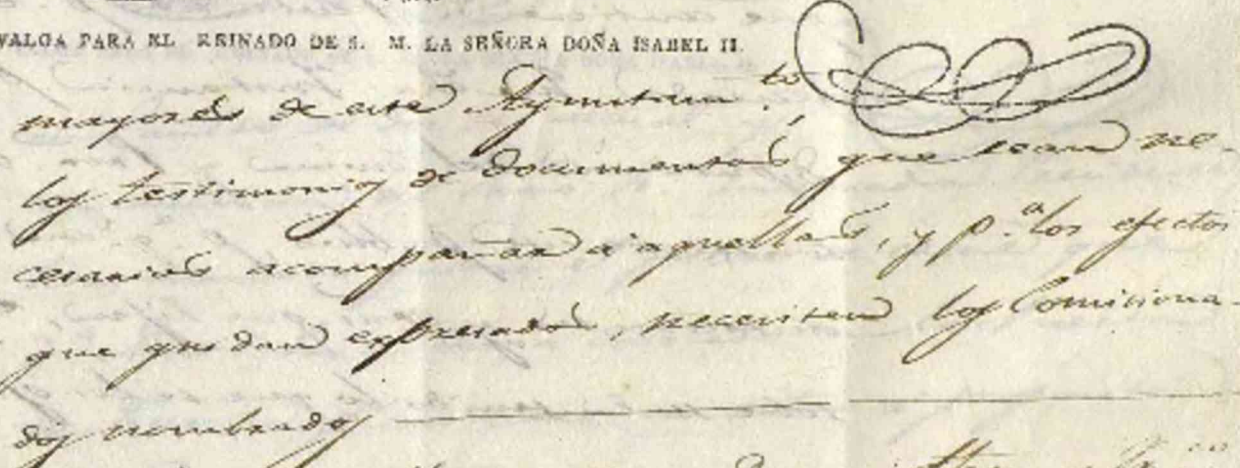 VALGA PARA EL REINADO DE S. M. LA SEÑORA DOÑA ISABEL II.
mayores de este Ayuntam.to
los testimonios de documentos que sean ne-
cesarios acompañar a aquellas, y p.a los efectos
que quedan expresados, necesiten los Comisiona-
dos nombrados